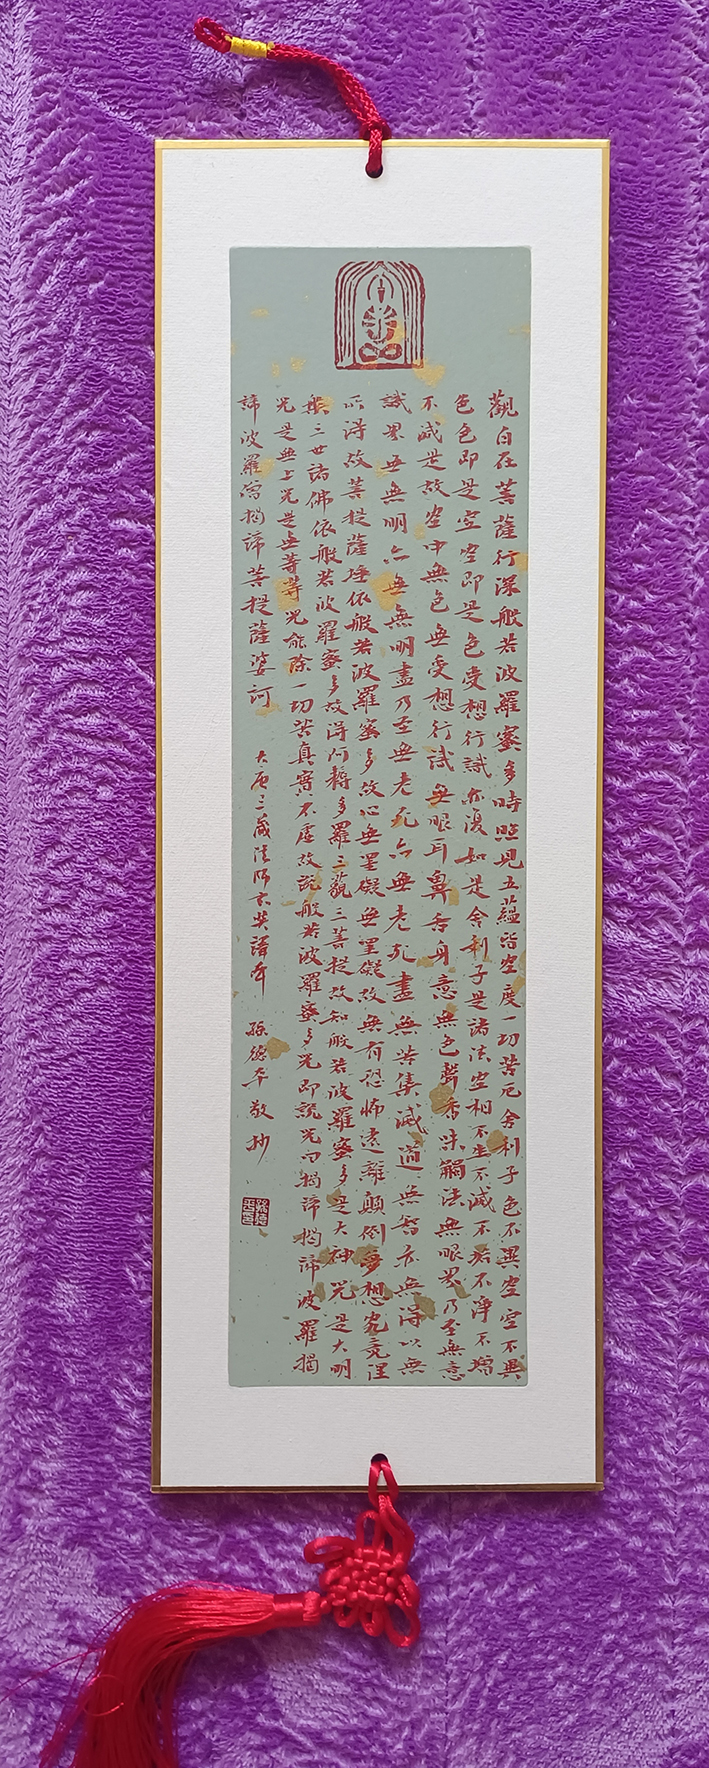 觀自在菩薩行深般若波羅蜜多時照見五蘊皆空度一切苦厄舍利子色不異空空不異
色色即是空空即是色受想行識亦復如是舍利子是諸法空相不生不滅不垢不淨不增
不減是故空中無色無受想行識無眼耳鼻舌身意無色聲香味觸法無眼界乃至無意
識界無無明亦無無明盡乃至無老死亦無老死盡無苦集滅道無智亦無得以無
所得故菩提薩埵依般若波羅蜜多故心無罣礙無罣礙故無有恐怖遠離顛倒夢想究竟涅
槃三世諸佛依般若波羅蜜多故得阿耨多羅三藐三菩提故知般若波羅蜜多是大神咒是大明
咒是無上咒是無等等咒能除一切苦真實不虛故說般若波羅蜜多咒即說咒曰揭諦揭諦波羅揭
諦波羅僧揭諦菩提薩婆訶 大唐三藏法師玄奘譯 孫德平敬抄